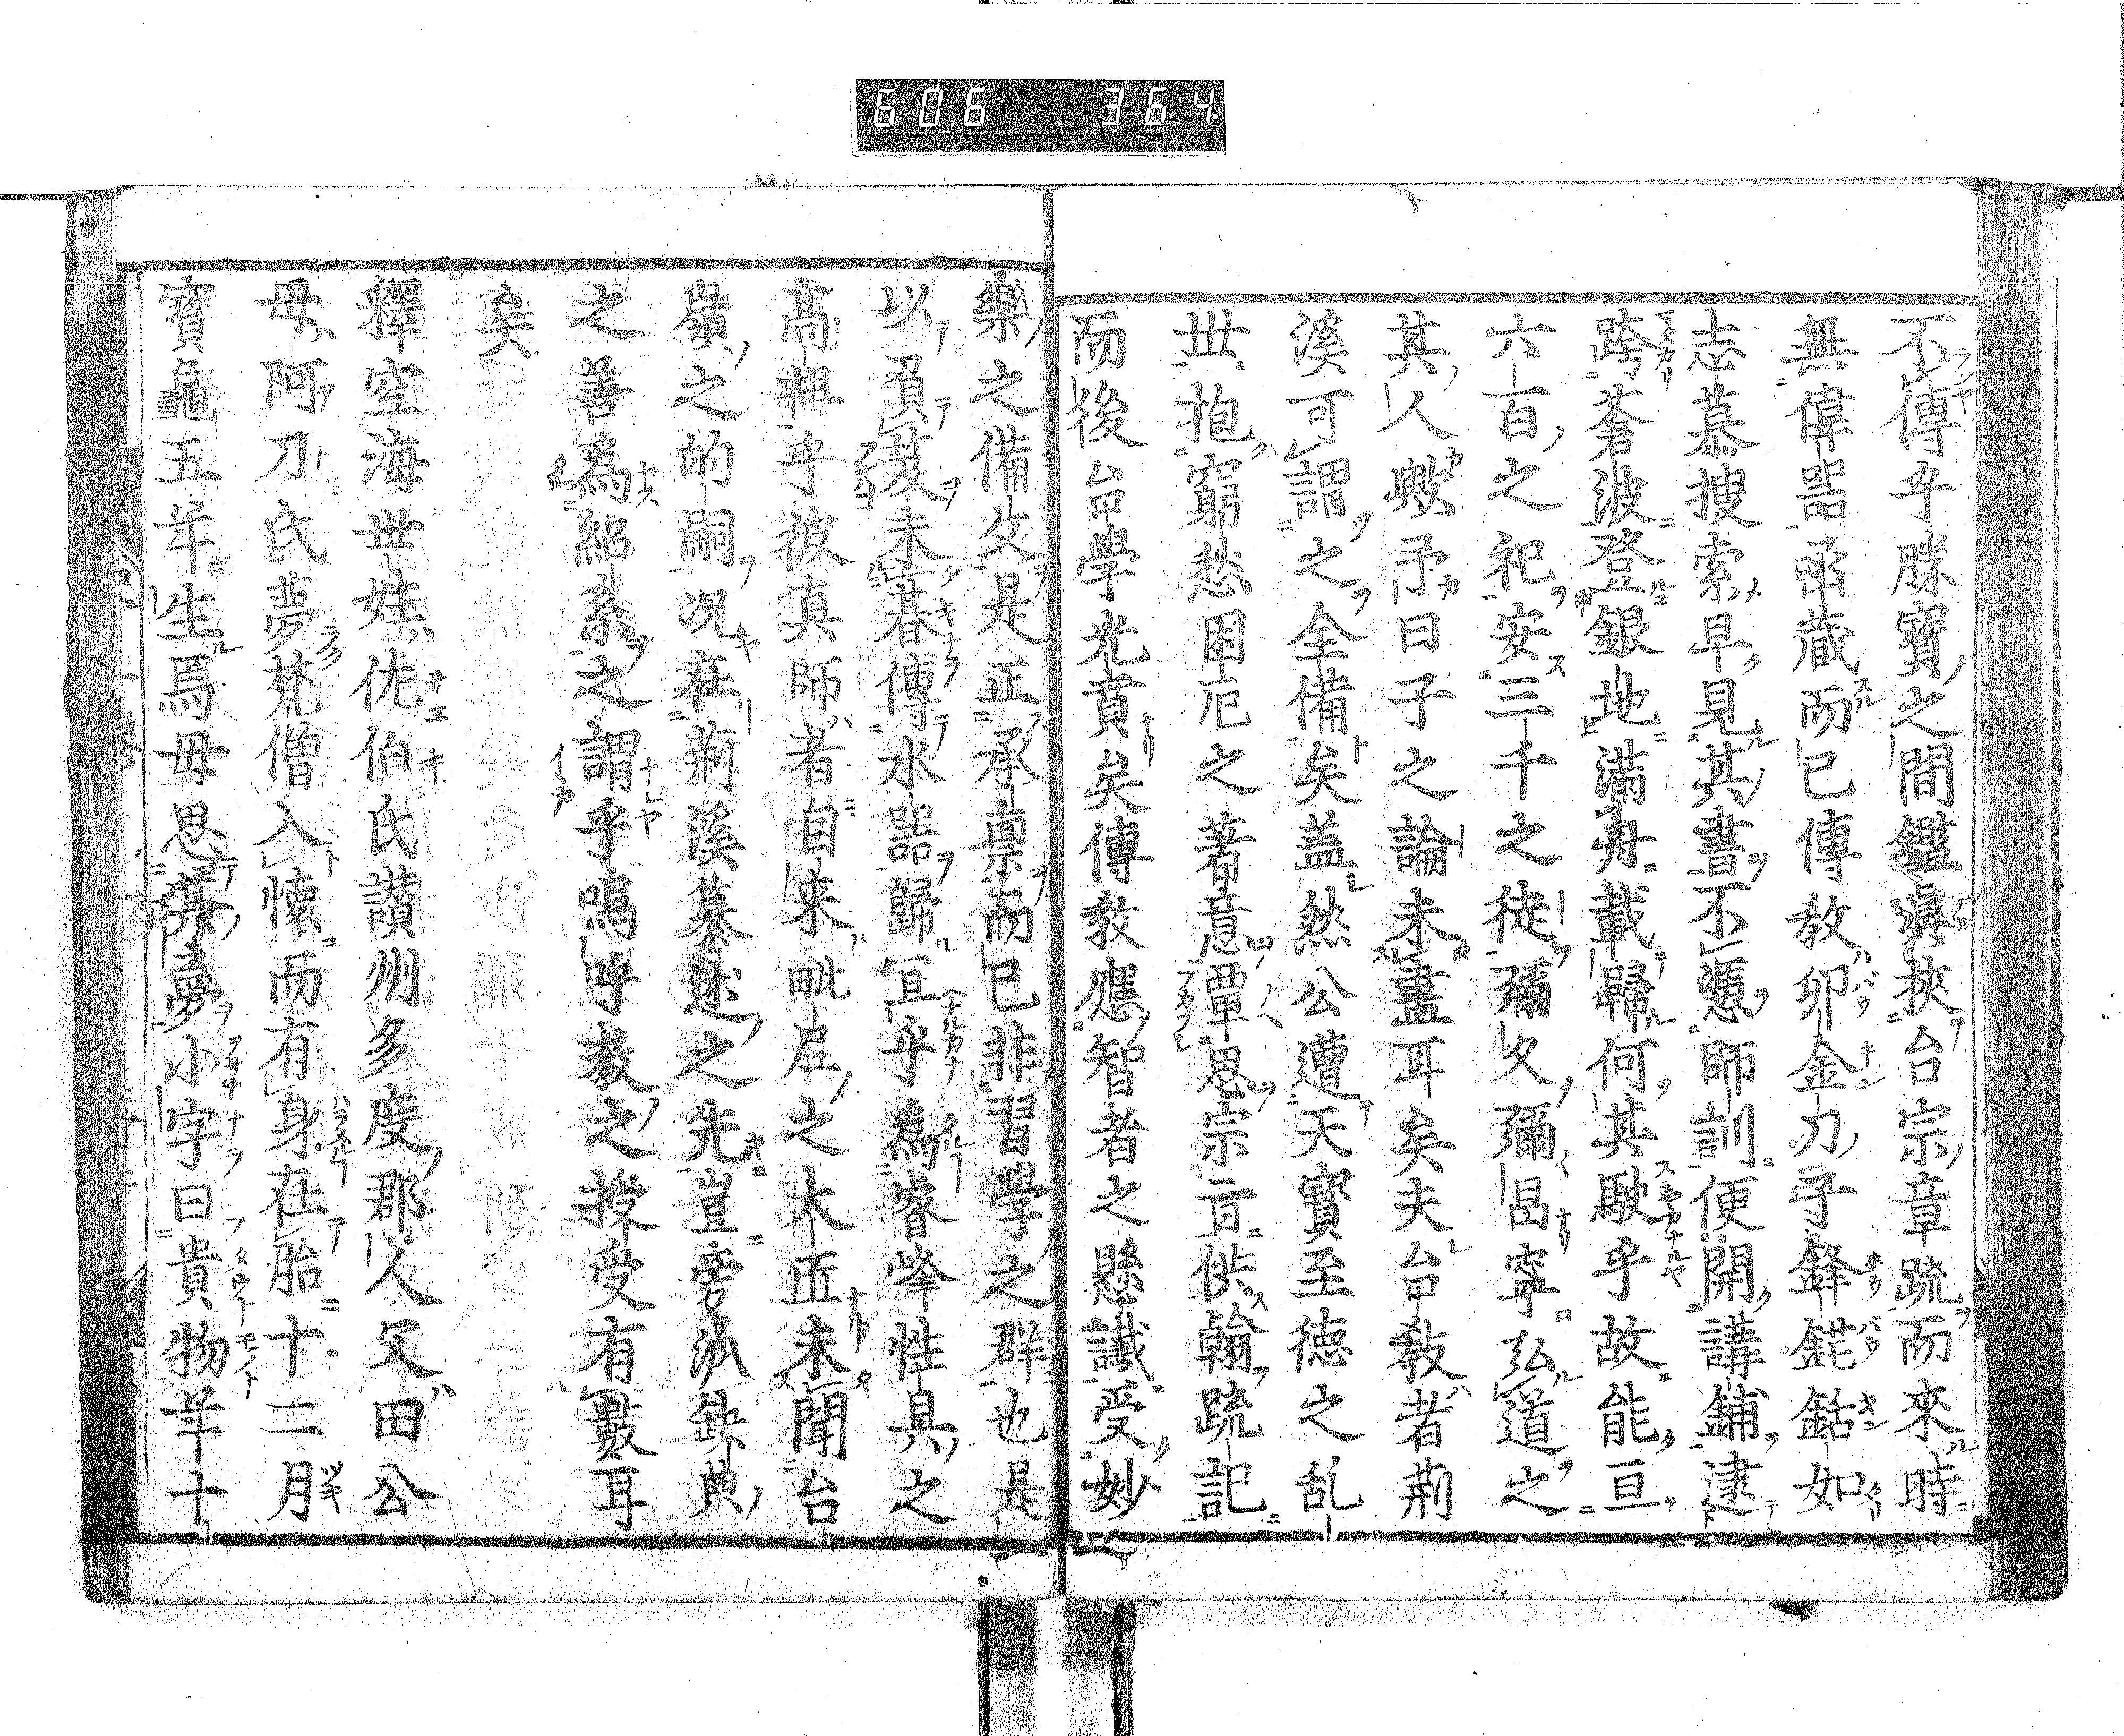 606 364
不傳乎勝寶之間鑑眞挾台宗章疏而來時
無偉噐函藏而已傳敎卯金刀子鋒鋩銛如
志慕搜索早見其書不憑師訓便開講鋪逮
跨蒼波登銀地滿舟載歸何其駛乎故能亘
六百之祀安三千之徒彌久彌昌寧弘道之
其人歟予曰子之論未盡耳矣夫台敎者荊
溪可謂之全備矣盖然公遭天寶至德之乱
丗抱窮愁困厄之著意覃思宗旨供翰䟽記
而後台學光賁矣傳敎應智者之懸讖受妙
樂之備文是正承禀而已非習學之群也是
以負笈未朞傳水噐歸冝乎爲睿峰性具之
高祖乎彼真師者自来毗尼之大匠未聞台
嶺之的嗣況在荊溪纂述之先豈旁派缺典
之善爲紹系之謂乎嗚呼敎之授受有數耳
矣
釋空海丗姓佐伯氏讃州多度郡人父田公
母阿刀氏夢梵僧入懷而有身在胎十二月
寶龜五年生焉母思其夢小字曰貴物年十